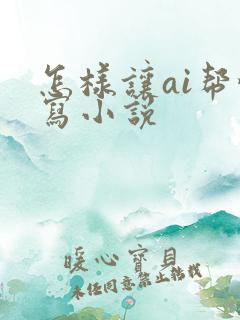 怎樣讓ai帮
寫小説
暖心寶貝
未任同意禁止轉載